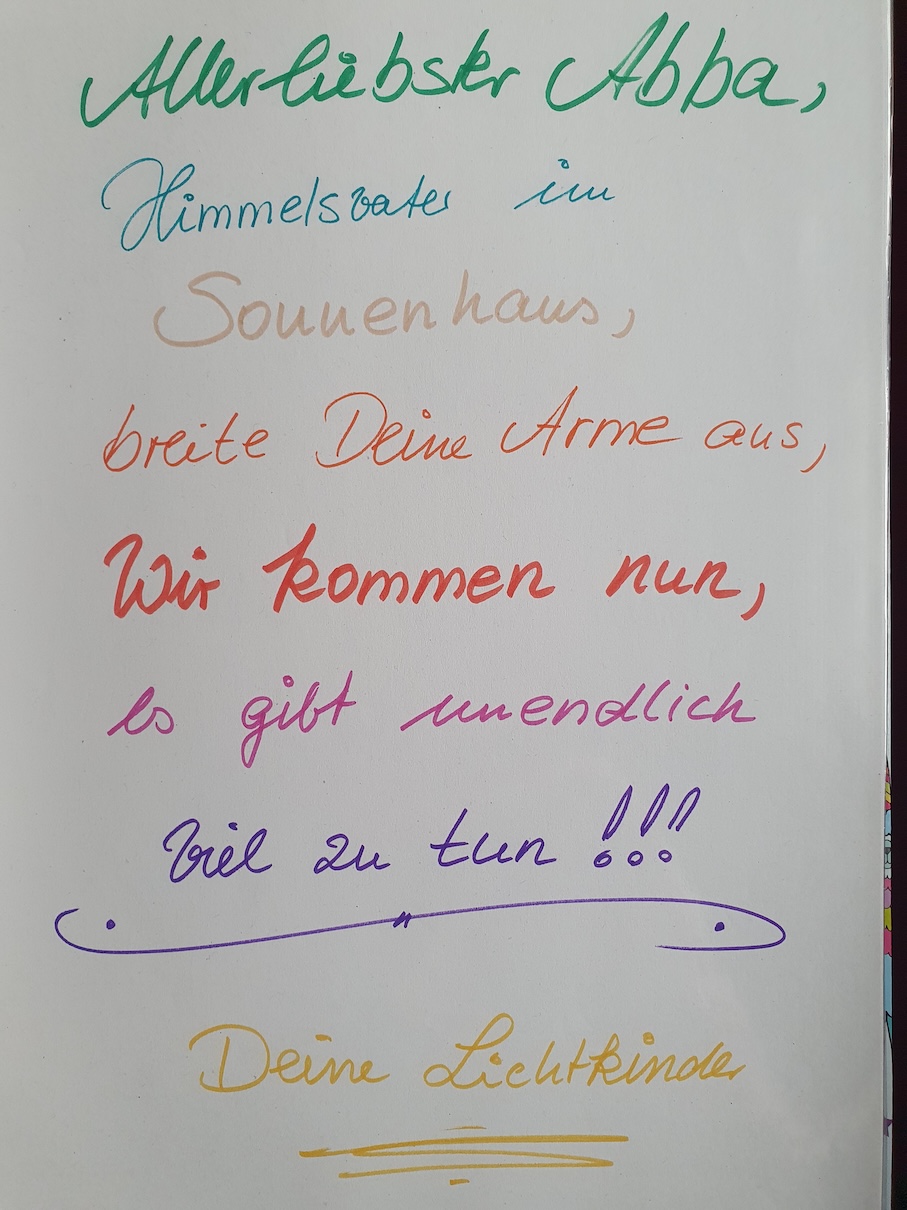 Allerliebster Abba,
Himmelsvater im
Sonnenhaus,
breite Deine Arme aus,
Wir kommen nun,
es gibt unendlich
viel zu tun !!!
Deine Lichtkinder